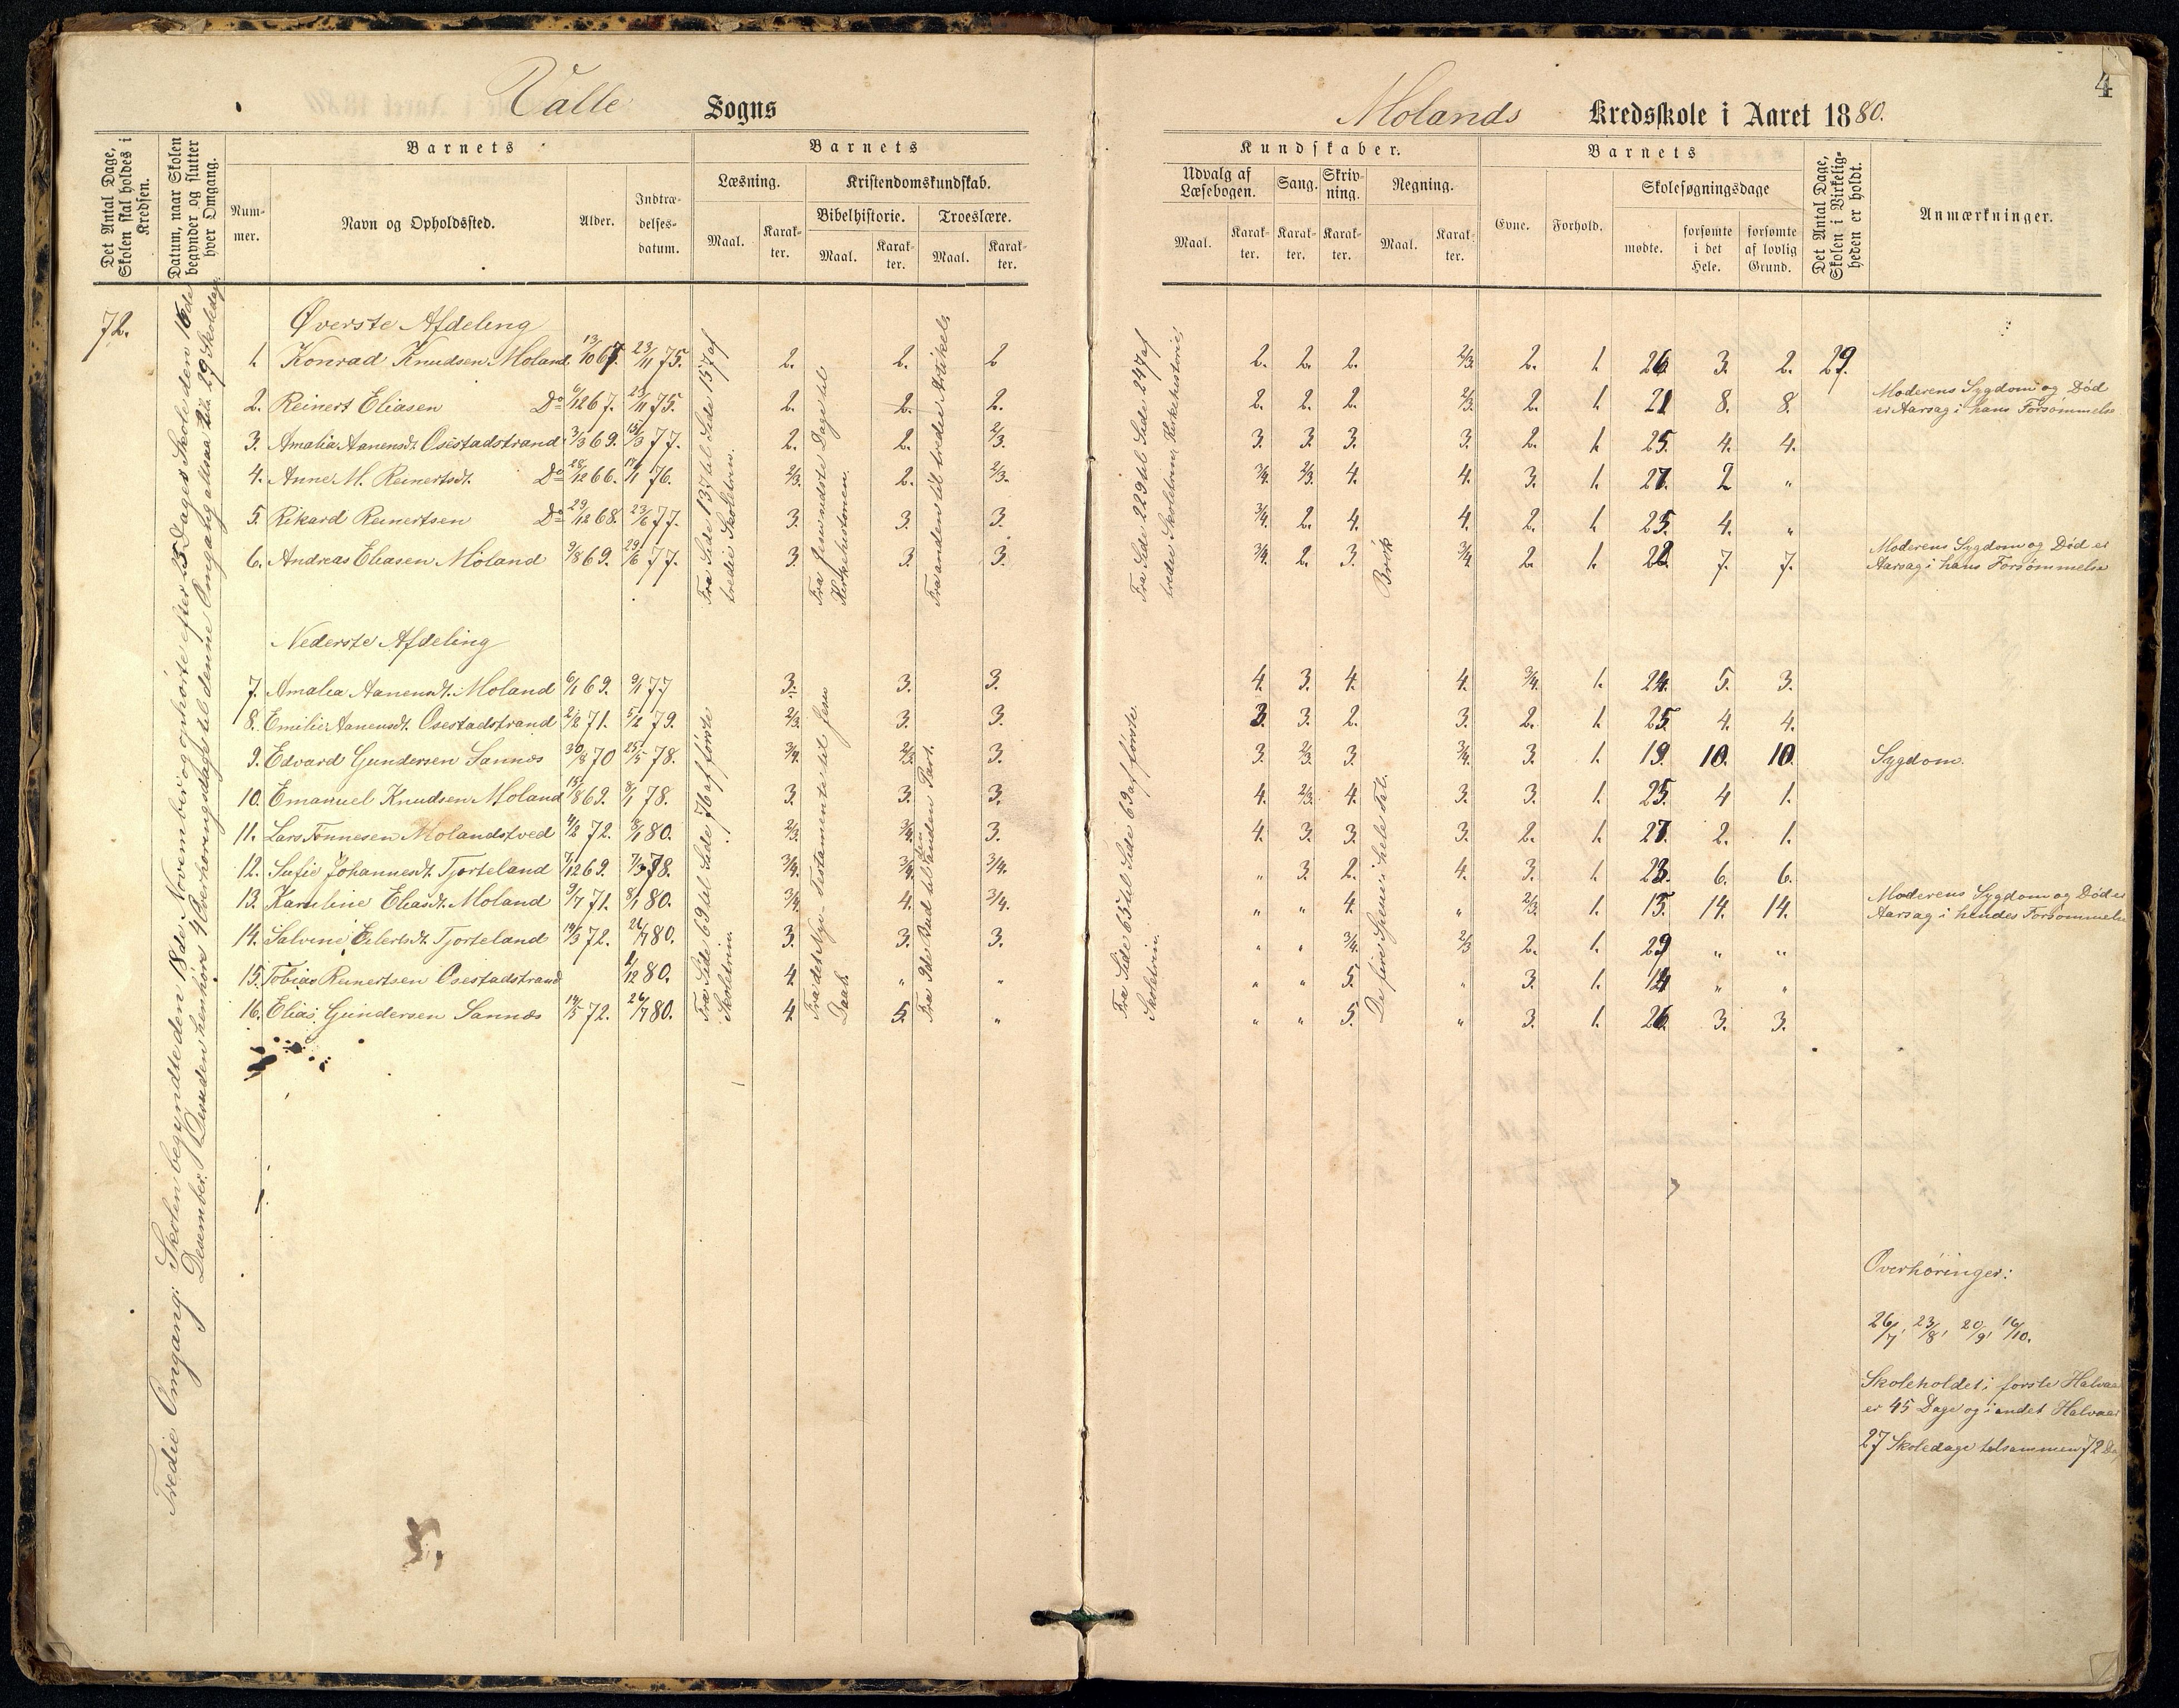 Valle Sogns
Molands Kredsskole i Aaret 1880.
4
Det Antal Dage, Skolen skal holdes i Kredsen.
Datum, naar Skolen begynder og slutter hver Omgang.
Barnets
Num-mer.
Navn og Opholdssted.
Alder.
Indtræ-delses-datum.
Barnets
Læsning.
Maal.
Karak-ter.
Kristendomskundskab.
Bibelhistorie.
Maal.
Karak-ter.
Troeslære.
Maal.
Karak-ter.
Kundskaber.
Udvalg af Læsebogen.
Maal.
Karak-ter.
Sang.
Karak-ter.
Skriv-ning.
Karak-ter.
Regning.
Maal.
Karak-ter.
Barnets
Evne.
Forhold.
Skolesøgningsdage
mødte.
forsømte i det Hele.
forsømte af lovlig Grund.
Det Antal Dage, Skolen i Virkelig-heden er holdt.
Anmærkninger.
72.
Tredie Omgang: Skolen begyndte den 18de November og ophørte efter 25 Dages Skole den 16de
Desember. Desuden henhøre 4 Overhøringsdage til denne Omgang altsaa 29 Skoledage.
Øverste Afdeling
1. Konrad Knudsen Moland 13/10 67. 23/11 75. 2. 2. 2 2. 2. 2. 2/3. 2. 1. 26. 3. 2. 29.
2. Reinert Eliasen Do 6/12 67. 23/11 75. 2. 2. 2. 2. 2. 2. 2/3. 2. 1. 21 8. 8. Moderens Sygdom og Død
er Aarsag i hans Forsømmelse
3. Amalia Aanensdt. Osestadstrand 3/3 69. 15/3 77. 2. 2. 2/3. 3. 3. 3. 3. 2. 1. 25. 4. 4.
4. Anne M. Reinertsdt. Do 28/12 66. 17/1 76. 2/3. 2. 2/3. 3/4. 2/3. 4. 4. 3. 1. 27. 2 "
5. Rikard Reinertsen Do 29/12 68. 23/6 77. 3. 3. 3. 3/4. 2. 4. 4. 2. 1. 25. 4. "
6. Andreas Eliasen Moland 9/8 69. 29/6 77. 3. 3. 3. 3/4. 2. 3. 3/4. 2. 1. 22. 7. 7. Moderens Sygdom og Død er
Aarsag i hans Forsømmelse
Fra Side 137 til Side 157 af
tredie Skoletrin.
Fra Jesu sidste Dage til
Kirkehistorien.
Fra anden til tredie Artikel.
Fra Side 229 til Side 247 af
tredie Skoletrin, Kirkehistorie.
Brøk
Nederste Afdeling
7. Amalia Aanensdt. Moland 6/1 69. 9/1 77 3. 3. 3. 4. 3. 4. 4. 3/4. 1. 24. 5. 3.
8. Emilie Aanensdt. Osestadstrand 2/2 71. 5/2 79. 2/3. 3. 3. 3. 3. 2. 3. 2. 1. 25 4. 4.
9. Edvard Gundersen Sannes 30/8 70 25/5 78. 3/4. 2/3. 3. 3. 2/3. 3. 3/4. 3. 1. 19. 10. 10. Sygdom.
10. Emanuel Knudsen Moland 15/8 69. 8/1 78. 3. 3. 3. 4. 2/3. 4. 3. 3. 1. 25. 4 1.
11. Lars Tønnesen Molandstved 4/2 72. 8/1 80. 2/3. 3/4. 3. 4. 3. 3. 3. 2. 1. 27. 2. 1.
12. Sufie Johannesdt. Tjorteland 7/12 69. 7/3 78. 3/4. 3/4. 3/4. " 3. 2. 4. 3. 1. 23. 6. 6.
13. Karoline Eliasdt. Moland 9/7 71. 8/1 80. 3/4. 4. 3/4. " " 4. " 2/3. 1. 15. 14. 14. Moderens Sygdom og Død er
Aarsag i hendes Forsømmelse
14. Salvine Eilertsdt. Tjorteland 19/3 72. 26/7 80. 3. 3. 3. " " 3/4. 2/3 2. 1. 29 " "
15. Tobias Reinertsen Osestadstrand 1/12 80. 4 " " " " 5. " 3. 1. 14 " "
16. Elias Gundersen Sannes 14/5 72. 26/7 80. 4. 5. " " " 5. " 3. 1. 26. 3. 3.
Fra Side 69 til Side 76 af første
Skoletrin.
Fra det Nye Testamente til Jesu
Daab.
Fra 9de Bud til den anden Part.
Fra Side 65 til Side 69 af første
Skoletrin.
De fire Spesier i hele Tal.
Overhøringer:
26/7, 23/8, 20/9, 16/10.
Skoleholdet i første Halvaar
er 45 Dage og i andet Halvaar
27 Skoledage tilsammen 72 Da